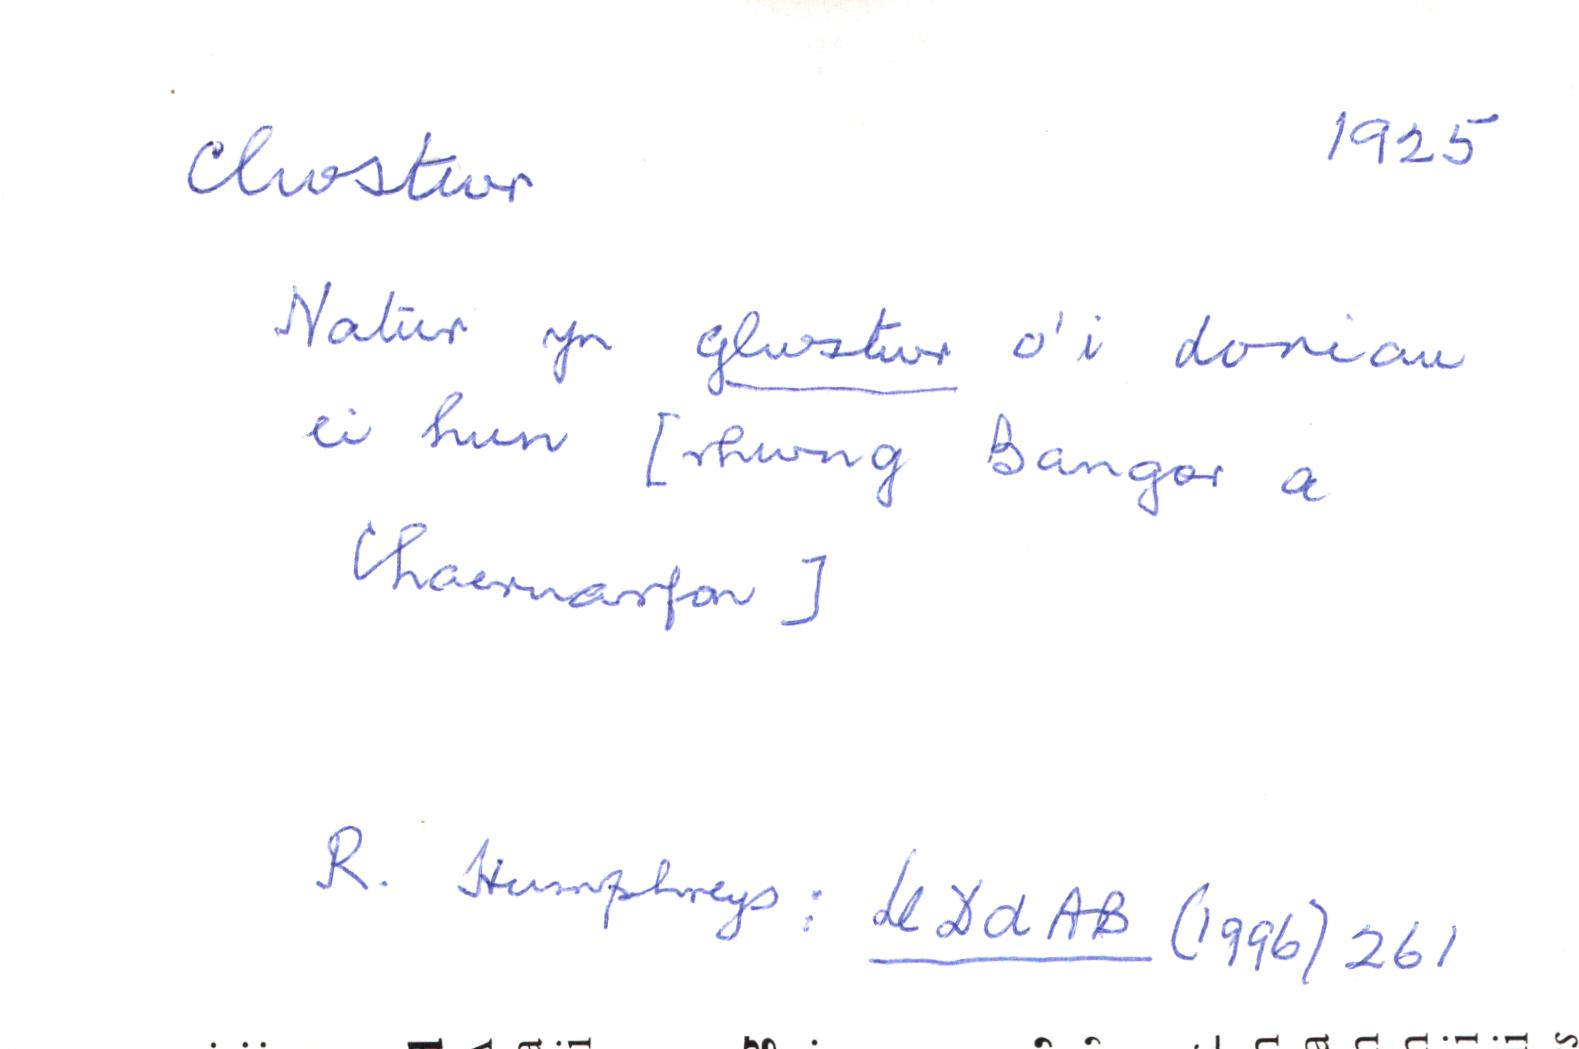 clwstwr 1925
Natur yn glwstwr o'i doniau
ei hun [rhwng Bangor a
Chaernarfon]
R. Humphreys: Ll Dd AB (1996) 261